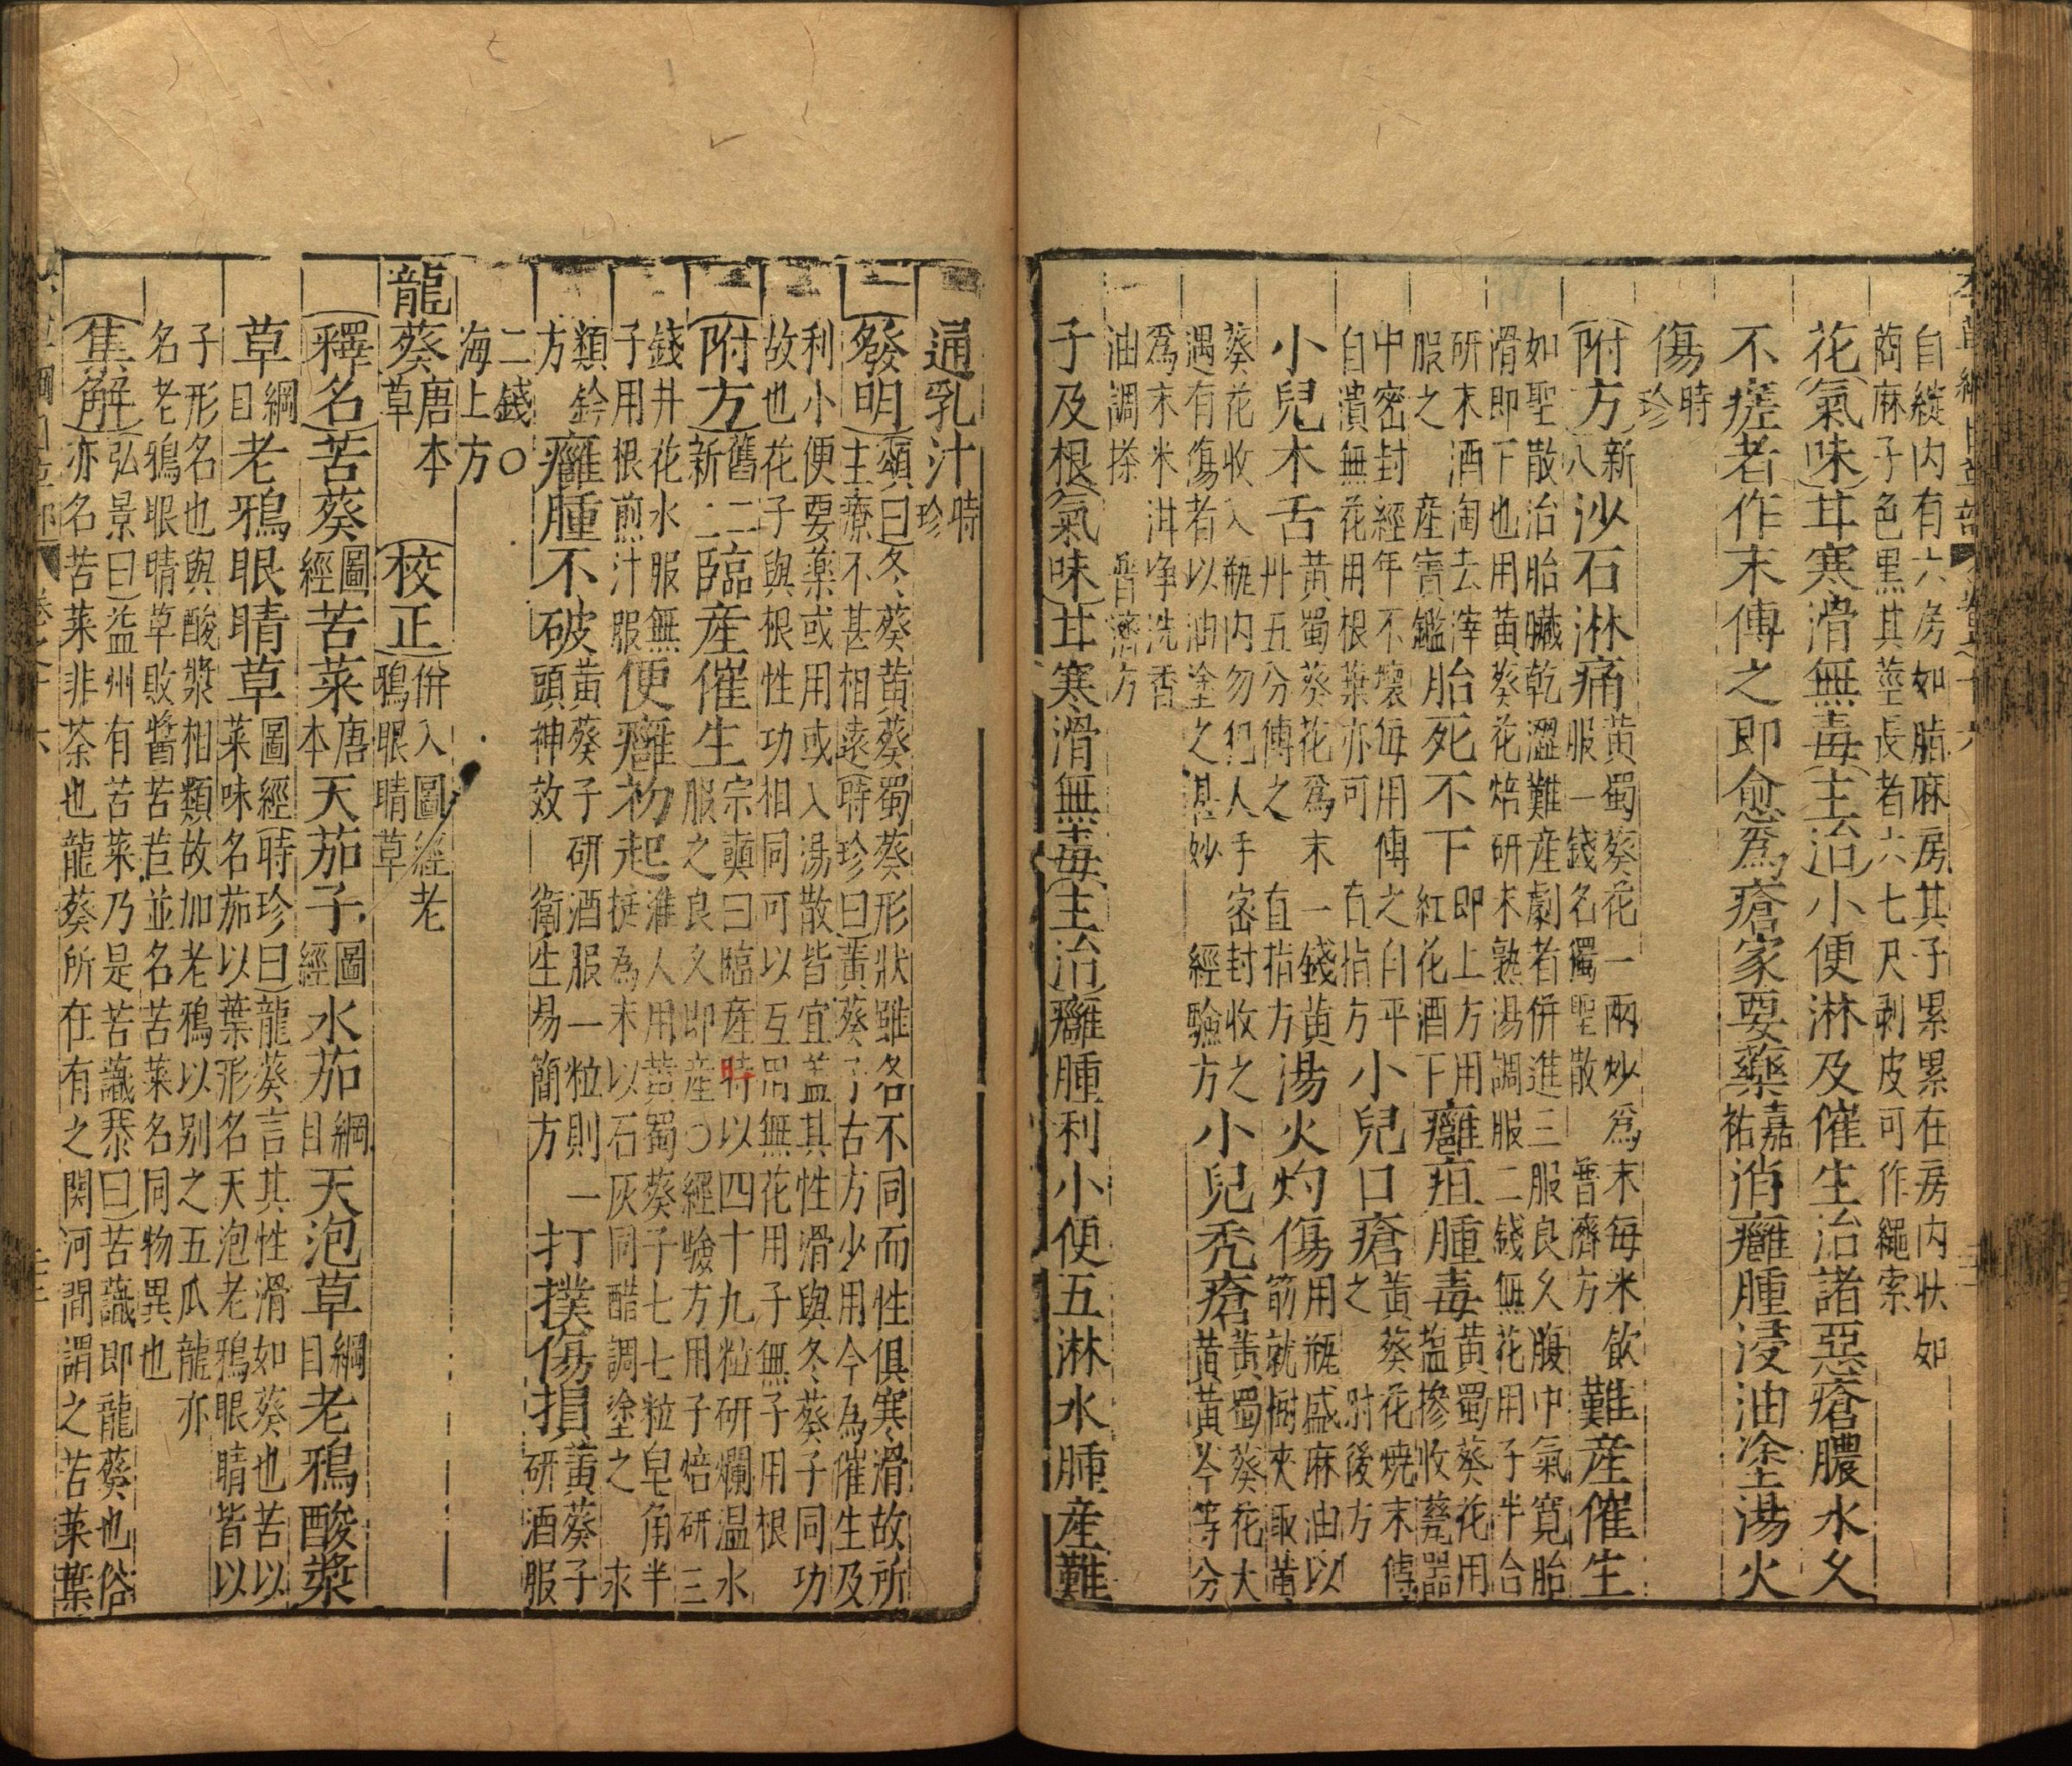 自綻内有六房如脂麻房其子累累在房内狀如
蔏麻子色黑其莖長者六七尺剥皮可作繩索
花(氣味)甘寒滑無毒(主治)小便淋及催生治諸惡瘡膿水久
不瘥者作末傅之即愈爲瘡家要藥嘉祐消癰腫浸油塗湯火
傷時珍
(附方)新八沙石淋痛黄蜀葵花一兩炒爲末每米飲服一錢名獨聖散 普濟方難産催生
如聖散治胎臟乾澀難産劇者併進三服良久腹中氣寛胎
滑即下也用黄葵花焙研末熟湯調服二錢無花用子半合
研末酒淘去滓服之 産寳鑑胎死不下即上方用紅花酒下癰疽腫毒黄蜀葵花用鹽掺收甆器
中密封經年不壞每用傅之自平自潰無花用根葉亦可 直指方小兒口瘡黄葵花燒末傅之 肘後方
小兒木舌黄蜀葵花爲末一錢黄丹五分傅之 直指方湯火灼傷用瓶盛麻油以筯就樹夾取黄
葵花收入瓶内勿犯人手密封收之遇有傷者以油塗之甚妙 經驗方小兒秃瘡黄蜀葵花大黄黄芩等分
爲末米泔净洗香油調搽 普濟方
子及根(氣味)甘寒滑無毒(主治)癰腫利小便五淋水腫産難
通乳汁時珍
(發明)(頌曰)冬葵黄葵蜀葵形狀雖各不同而性俱寒滑故所主療不甚相遠(時珍曰)黄葵子古方少用今為催生及
利小便要藥或用或入湯散皆宜盖其性滑與冬葵子同功
故也花子與根性功相同可以互用無花用子無子用根
(附方)舊二新二臨産催生宗奭曰臨産時以四十九粒研爛温水服之良久即産○經驗方用子焙研三
錢井花水服無子用根煎汁服便癰初起淮人用黄蜀葵子七七粒皂角半挺為末以石灰同醋調塗之 永
類鈐方癰腫不破黄葵子研酒服一粒則一頭神效 衛生易簡方打撲傷損黄葵子研酒服
二錢○海上方
龍葵唐本草(校正)併入圖經老鴉眼睛草
(釋名)苦葵圖經苦菜唐本天茄子圖經水茄綱目天泡草綱目老鴉酸漿
草綱目老鴉眼睛草圖經(時珍曰)龍葵言其性滑如葵也苦以菜味名茄以葉形名天泡老鴉眼睛皆以
子形名也與酸漿相類故加老鴉以别之五爪龍亦
名老鴉眼睛草敗醬苦苣並名苦菜名同物異也
(集解)(弘景曰)益州有苦菜乃是苦䕲(恭曰)苦䕲即龍葵也俗亦名苦菜非荼也龍葵所在有之関河間謂之苦菜葉